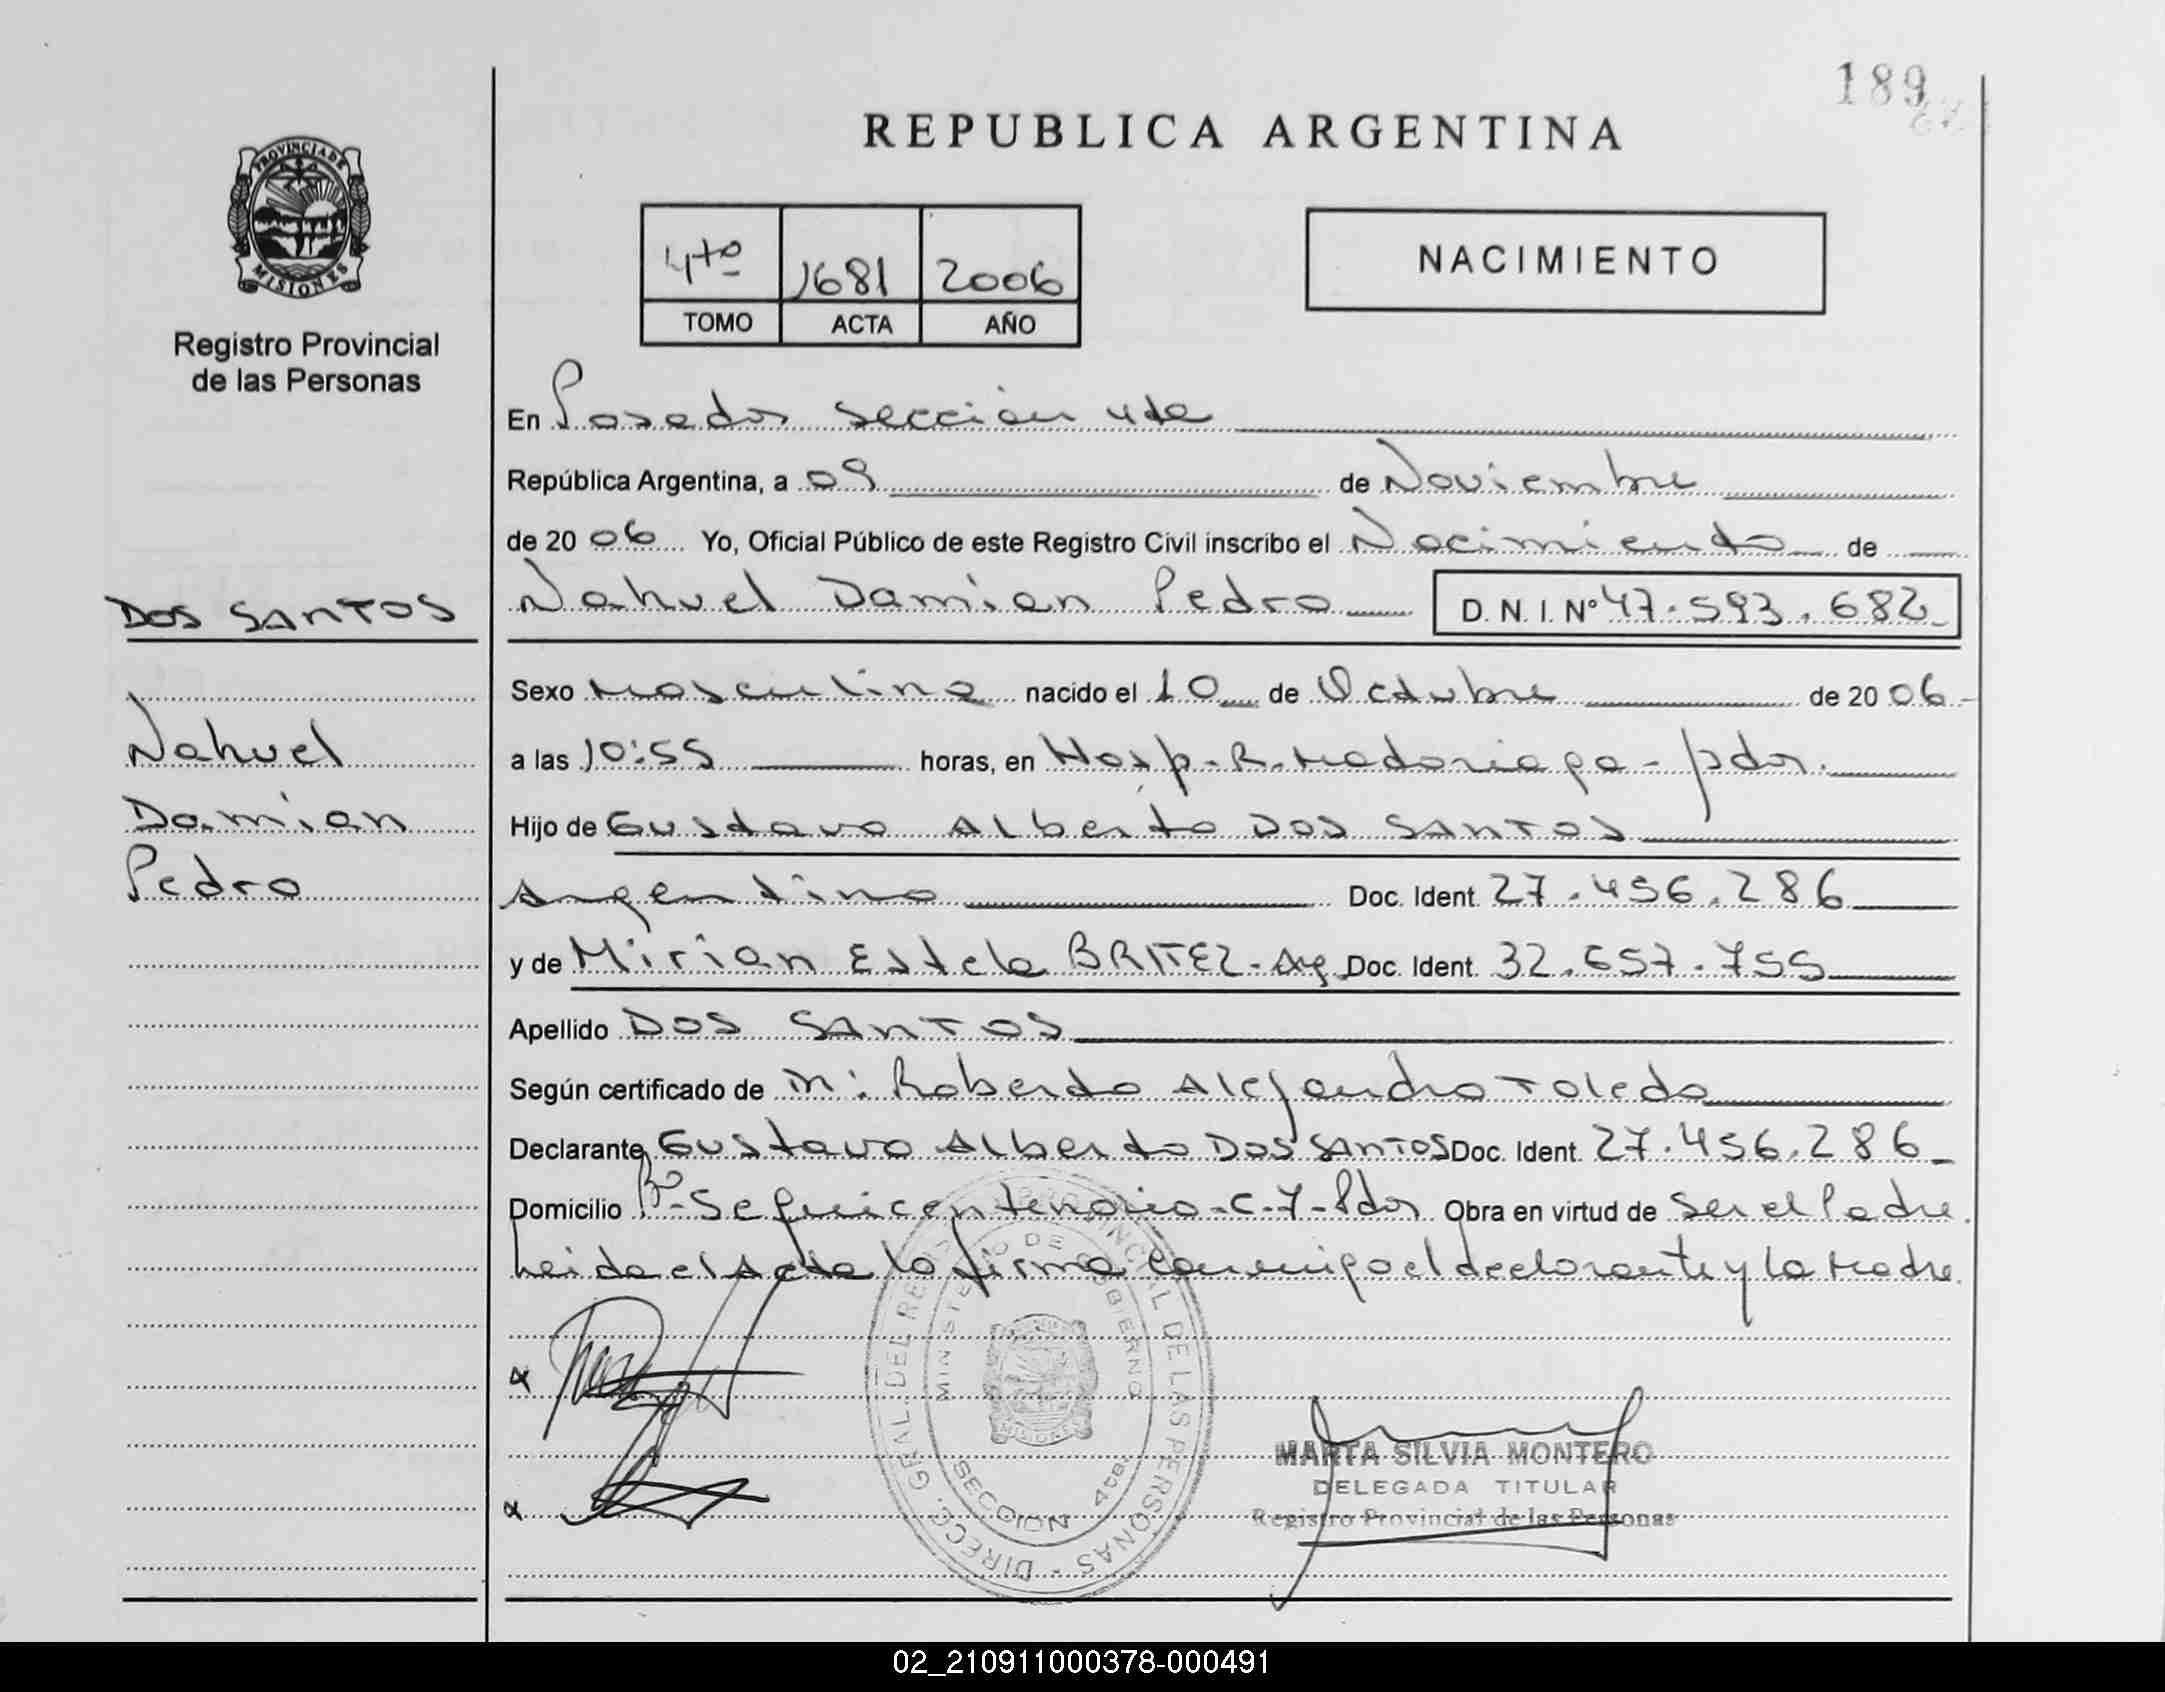 189
REPUBLICA ARGENTINA
PROVINCIA DE
MISIONES
Registro Provincial
de las Personas
4to 1681 2006
TOMO ACTA AÑO
NACIMIENTO
En Posadas sección 4ta
República Argentina, a 09 de Noviembre
de 20 06 Yo, Oficial Público de este Registro Civil inscribo el Nacimiento de
DOS SANTOS
Nahuel Damian Pedro D. N. I. N° 47.593.682
Sexo Masculino nacido el 10 de Octubre de 20 06
Nahuel
a las 10:55 horas, en Hosp. R. Madariaga - pdas.
Damian
Hijo de Gustavo Alberto DOS SANTOS
Pedro
Argentino Doc. Ident. 27.456.286
y de Mirian Estela BRITEZ - Arg. Doc. Ident. 32.657.755
Apellido DOS SANTOS
Según certificado de M: Roberto Alejandro Toledo
Declarante Gustavo Alberto DOS SANTOS Doc. Ident. 27.456.286
Domicilio Bº Sequicentenario - C. 7 - Pdas Obra en virtud de Ser el Padre.
Leida el Acta la firma conmigo el declarante y la Madre.
DIRECC. GRAL. DEL REGISTRO PROVINCIAL DE LAS PERSONAS
MINISTERIO DE GOBIERNO
MISIONES
SECCION 4ta.
MARTA SILVIA MONTERO
DELEGADA TITULAR
Registro Provincial de las Personas
02_210911000378-000491